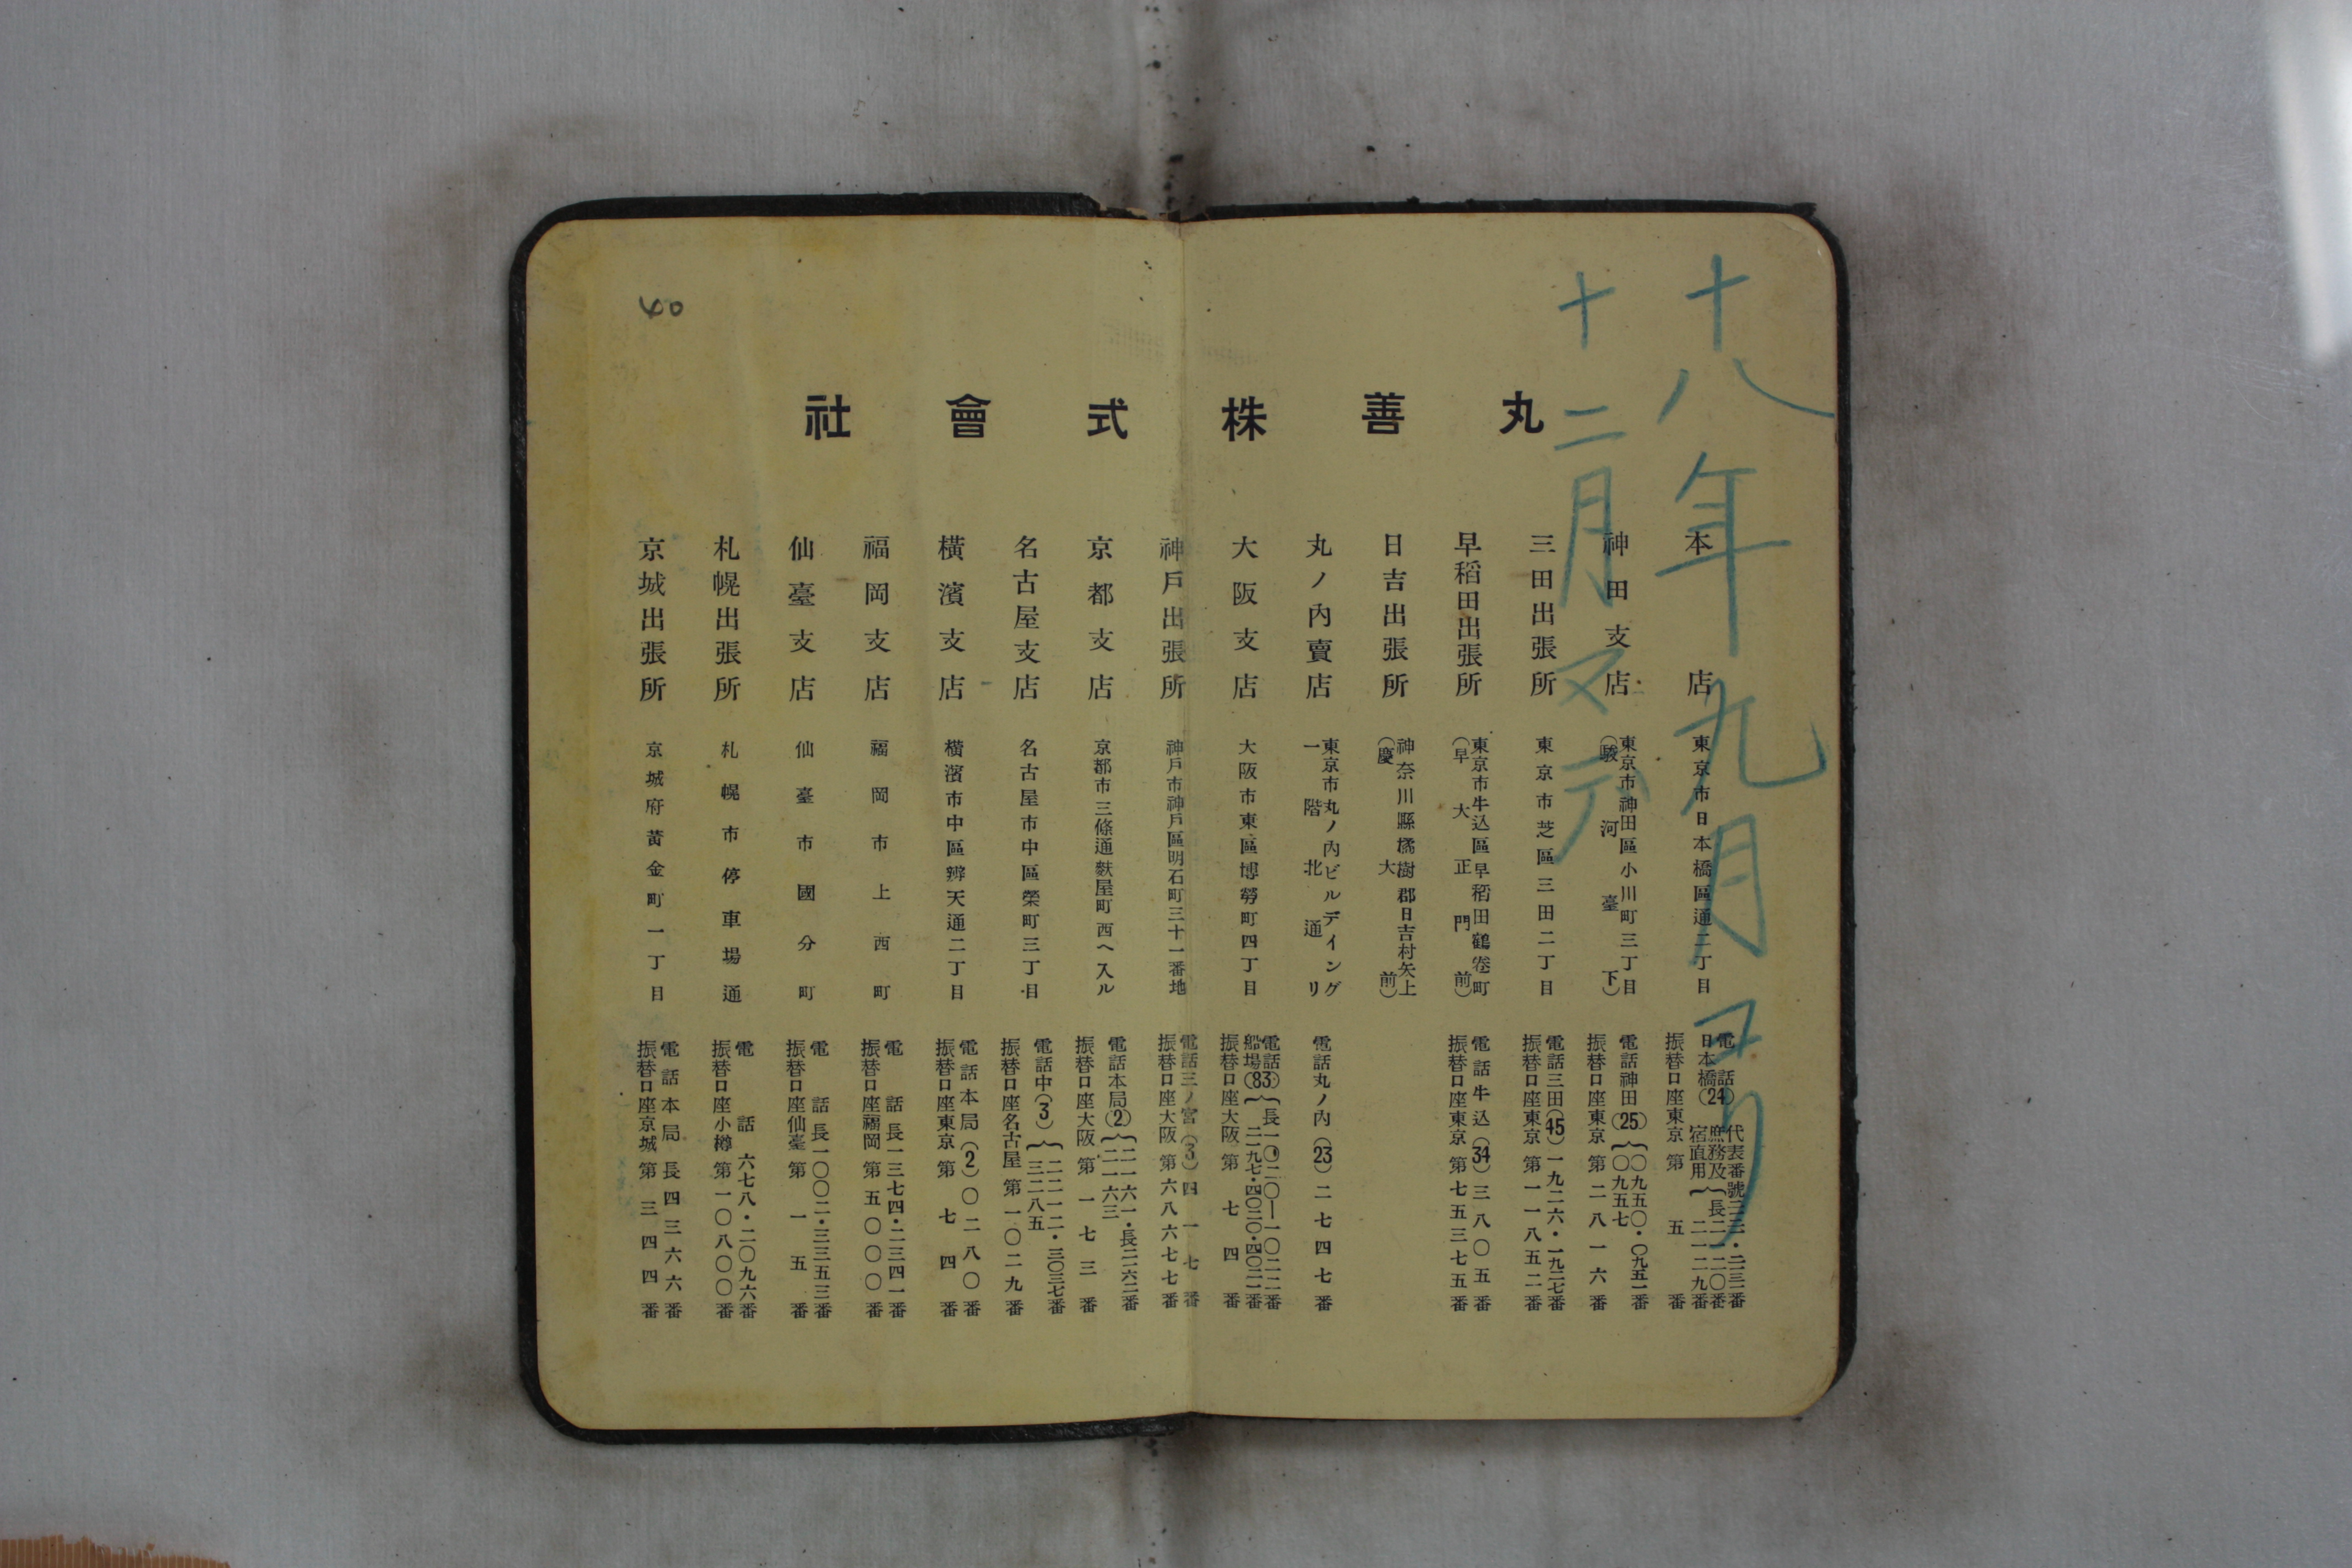 十八年九月ヨリ
十二月マデ
40
丸善株式會社
本店
東京市日本橋區通二丁目
電話日本橋(24)
代表番號
庶務及宿直用
振替口座東京第五番
神田支店
東京市神田區小川町三丁目
(駿河臺下)
電話神田(25)〇九五〇・〇九五一番
〇九五七
振替口座東京第二八一六番
三田出張所
東京市芝區三田二丁目
電話三田(45)一九二六・一九二七番
振替口座東京第一一八五二番
早稻田出張所
東京市牛込區早稻田鶴卷町
(早大正門前)
電話牛込(34)三八〇五番
振替口座東京第七五三七五番
日吉出張所
神奈川縣橘樹郡日吉村矢上
(慶大前)
丸ノ內賣店
東京市丸ノ內ビルデイング
一階北通リ
電話丸ノ內(23)二七四七番
大阪支店
大阪市東區博勞町四丁目
電話船場(83)
振替口座大阪第七四番
神戶出張所
神戶市神戶區明石町三十一番地
電話三ノ宮(3)四一七番
振替口座大阪第六八六七七番
京都支店
京都市三條通麩屋町西ヘ入ル
電話本局(2)二一六一・長二二六二番
二一六三
振替口座大阪第一七三番
名古屋支店
名古屋市中區榮町三丁目
電話中(3)二二一二・三〇三七番
三二八五
振替口座名古屋第一〇二九番
橫濱支店
橫濱市中區辨天通二丁目
電話本局(2)〇二八〇番
振替口座東京第七四番
福岡支店
福岡市上西町
電話長一三七四・二三四一番
振替口座福岡第五〇〇〇番
仙臺支店
仙臺市國分町
電話長一〇〇二・三三五三番
振替口座仙臺第一五番
札幌出張所
札幌市停車場通
電話六七八・二〇九六番
振替口座小樽第一〇八〇〇番
京城出張所
京城府黃金町一丁目
電話本局長四三六六番
振替口座京城第三四四番